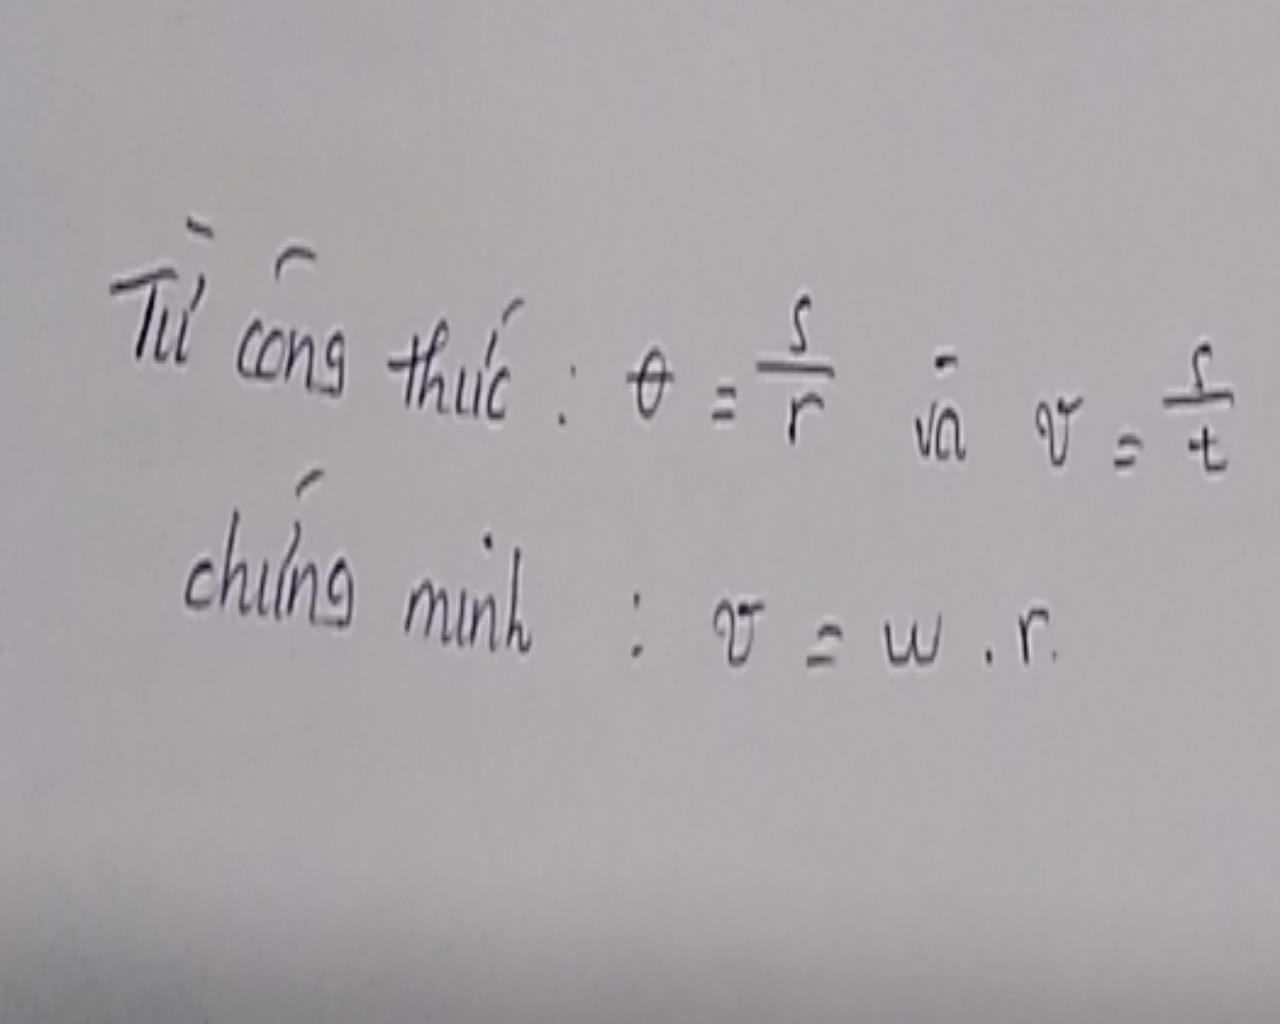 Từ công thức : θ = s/r và v = s/t
chứng minh : v = w . r.